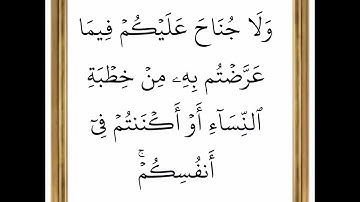 وَلَا جُنَاحَ عَلَيْكُمْ فِيمَا
عَرَّضْتُم بِهِۦ مِنْ خِطْبَةِ
ٱلنِّسَآءِ أَوْ أَكْنَنتُمْ فِىٓ
أَنفُسِكُمْ ۚ